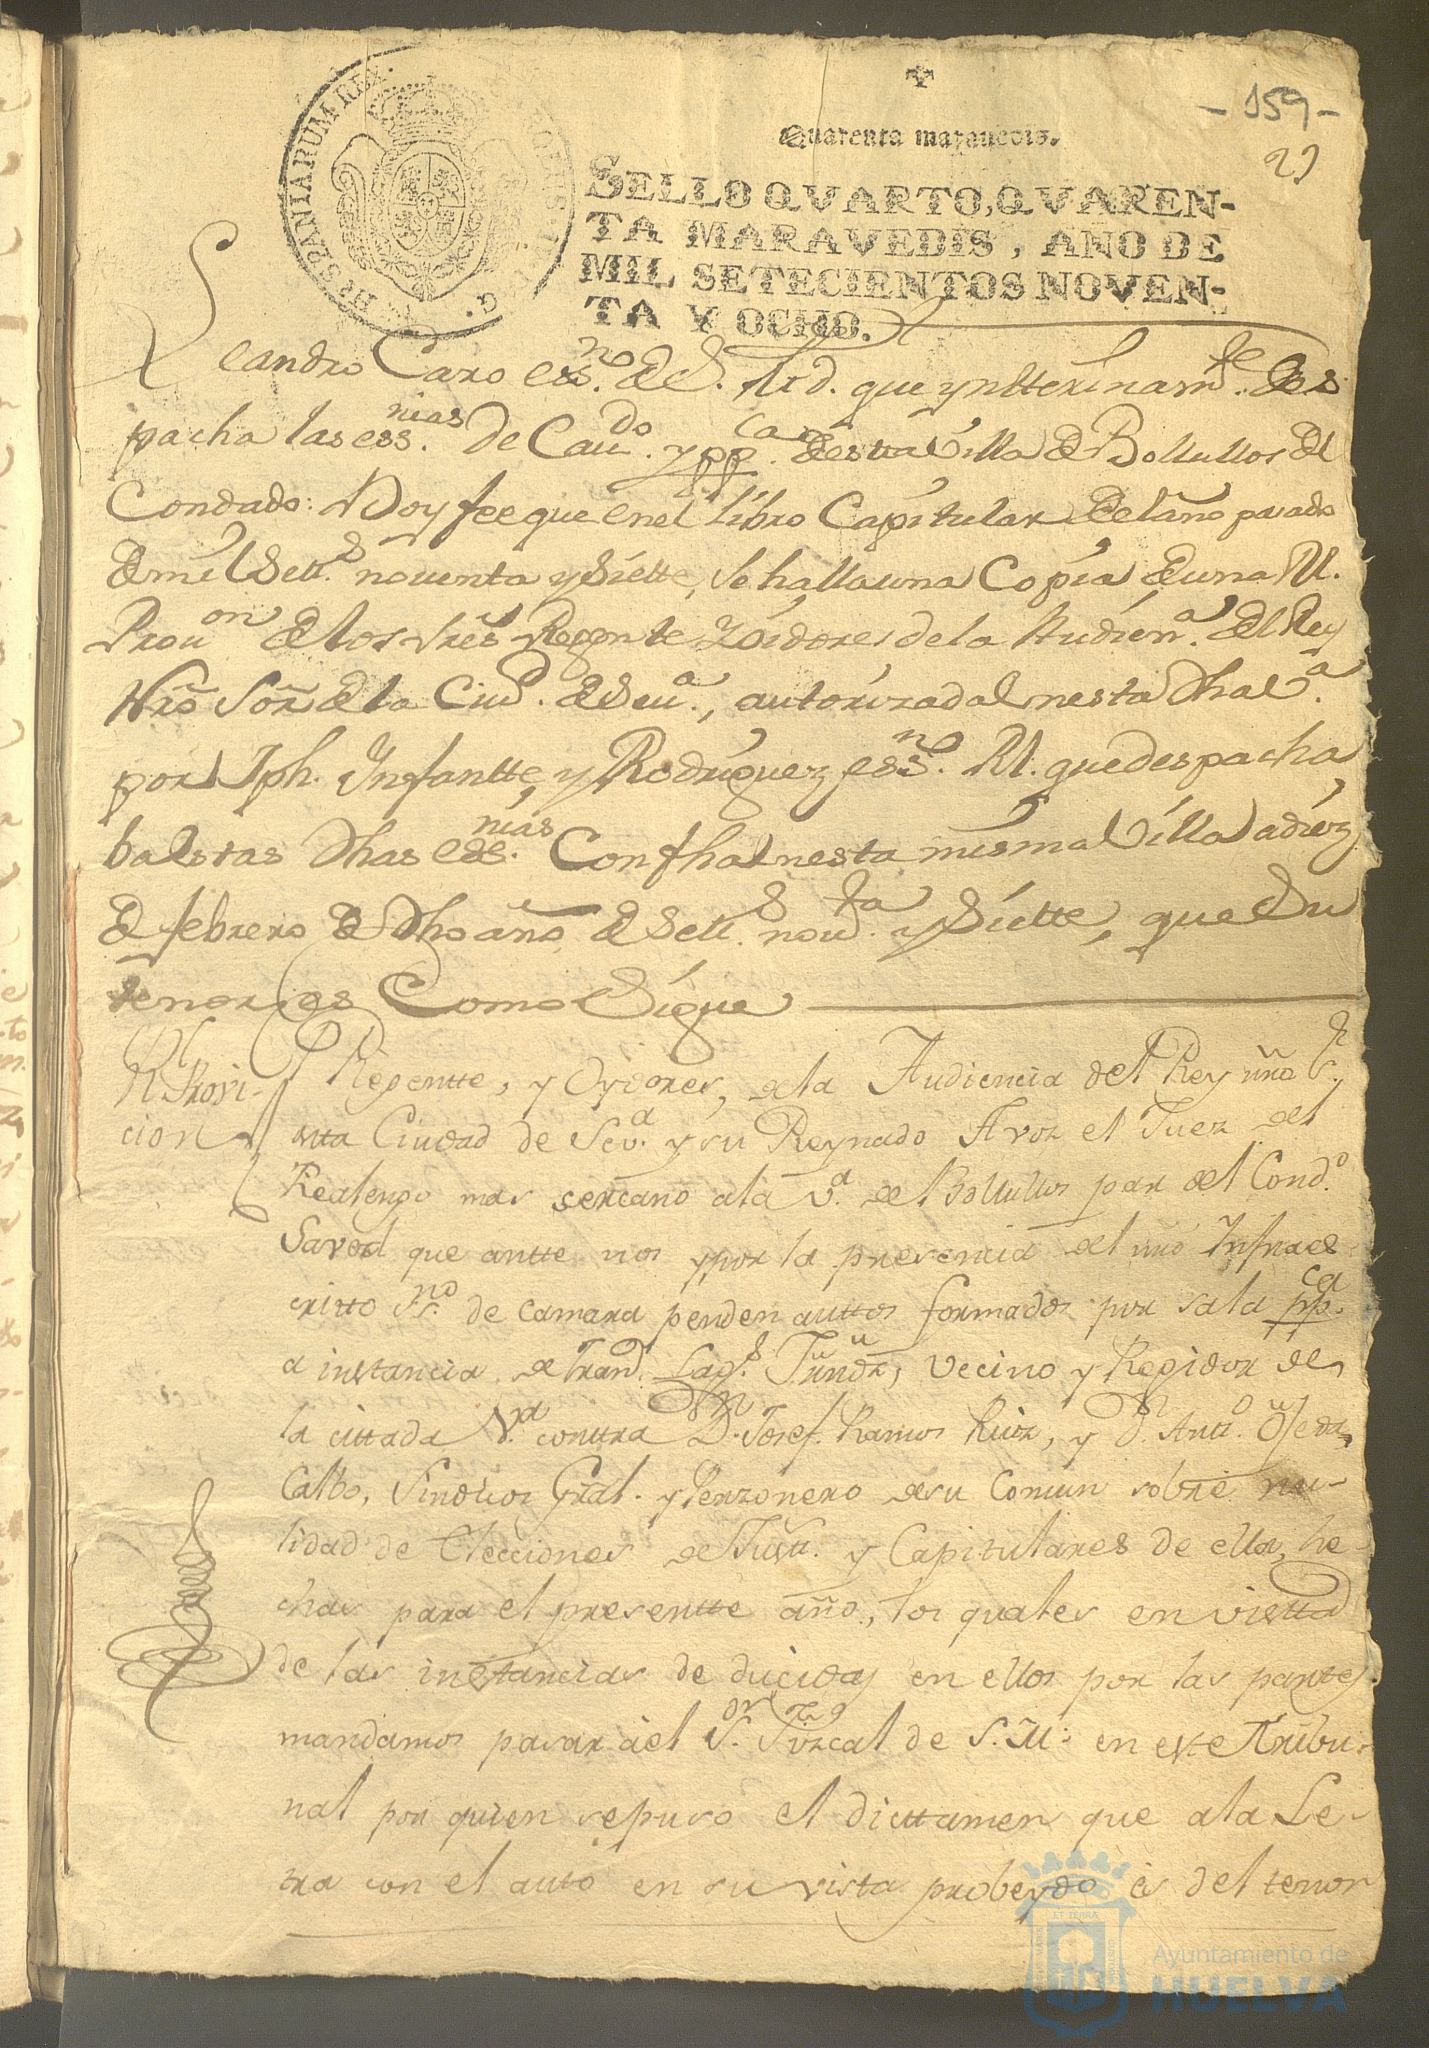 -159-
Quarenta marauedis.
29
SELLO QVARTO, QVAREN-
TA MARAVEDIS, AÑO DE
MIL SETECIENTOS NOVEN-
TA Y OCHO.
HISPANIARUM REX
Leandro Caro essno. de S. Md. que ynterinamte. des
pacha las essnias. de Caudo. y ppca. de esta Villa de Bollullos del
Condado: Doy fee que en el libro Capitular del año pasado
de mil Setts. nouenta y Siette, se halla una Copia de una Rl.
Prouon. de los Sres Regente y Oidores de la Audiena. del Rey
Nro Sor. de la Ciud. de Seua., autorizada en esta dha Va.
por Jph. Infantte y Rodriguez essno. Rl. que despacha
ba estas dhas essnias. Con fha en esta misma Villa a diez
de febrero de dho año de Setts. nouta. y Siette, que Su
tenor es Como Sigue
Rl Provi-
cion
Regentte, y Oydores, de la Audiencia del Rey nro Sr.
en esta Ciudad de Seva. y su Reynado A vos el Juez del
Realengo mas sercano a la va. de Bollullos par del Condo.
Saved que antte nos y por la presencia del nro Infraes
critto Ssno. de camara penden auttos formados por sala ppca.
a instancia de Fran. Lags. vecino y Regidor de
la cittada Va. contra Dn. Josef. Ramos Ruiz, y Dn. Anto. Ojeda
Calbo, Sindicos Gral. y Perzonero de su Comun sobre nu-
lidad de Elecciones de Justt. y Capitulares de ella, he-
chas para el presentte año, los quales en vistta
de las instancias deducidas en ellos por las partes
mandamos pasar a el Sor. Fizcal de S. M. en este Tribu-
nal por quien se puso el dicttamen que a la Le-
tra con el auto en su vista probeydo es del tenor
Ayuntamiento de
HUELVA